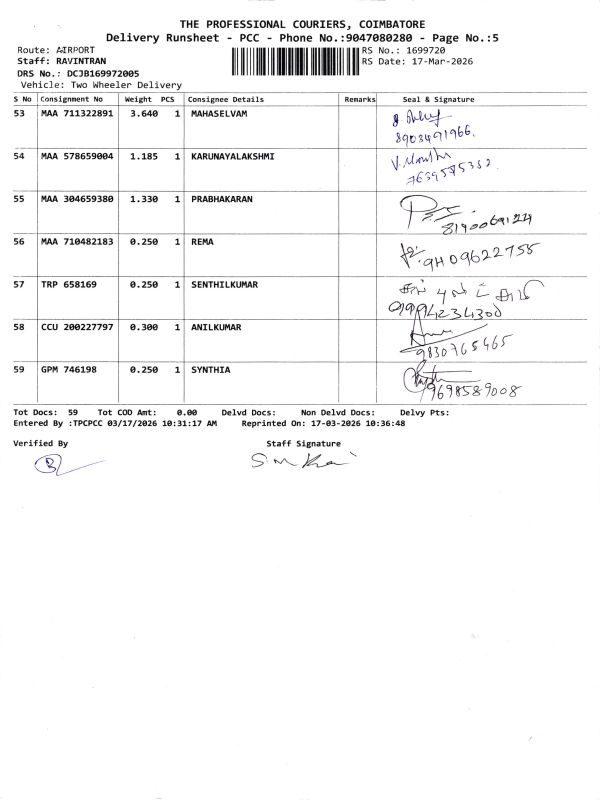 THE PROFESSIONAL COURIERS, COIMBATORE
Delivery Runsheet - PCC - Phone No.:9047080280 - Page No.:5
Route: AIRPORT RS No.: 1699720
Staff: RAVINTRAN RS Date: 17-Mar-2026
DRS No.: DCJB169972005
Vehicle: Two Wheeler Delivery
S No Consignment No Weight PCS Consignee Details Remarks Seal & Signature
53 MAA 711322891 3.640 1 MAHASELVAM
8903491966.
54 MAA 578659004 1.185 1 KARUNAYALAKSHMI
7639575352
55 MAA 304659380 1.330 1 PRABHAKARAN
8190069124
56 MAA 710482183 0.250 1 REMA
57 TRP 658169 0.250 1 SENTHILKUMAR
9994234300
58 CCU 200227797 0.300 1 ANILKUMAR
9830765465
59 GPM 746198 0.250 1 SYNTHIA
9698589008
Tot Docs: 59 Tot COD Amt: 0.00 Delvd Docs: Non Delvd Docs: Delvy Pts:
Entered By :TPCPCC 03/17/2026 10:31:17 AM Reprinted On: 17-03-2026 10:36:48
Verified By Staff Signature